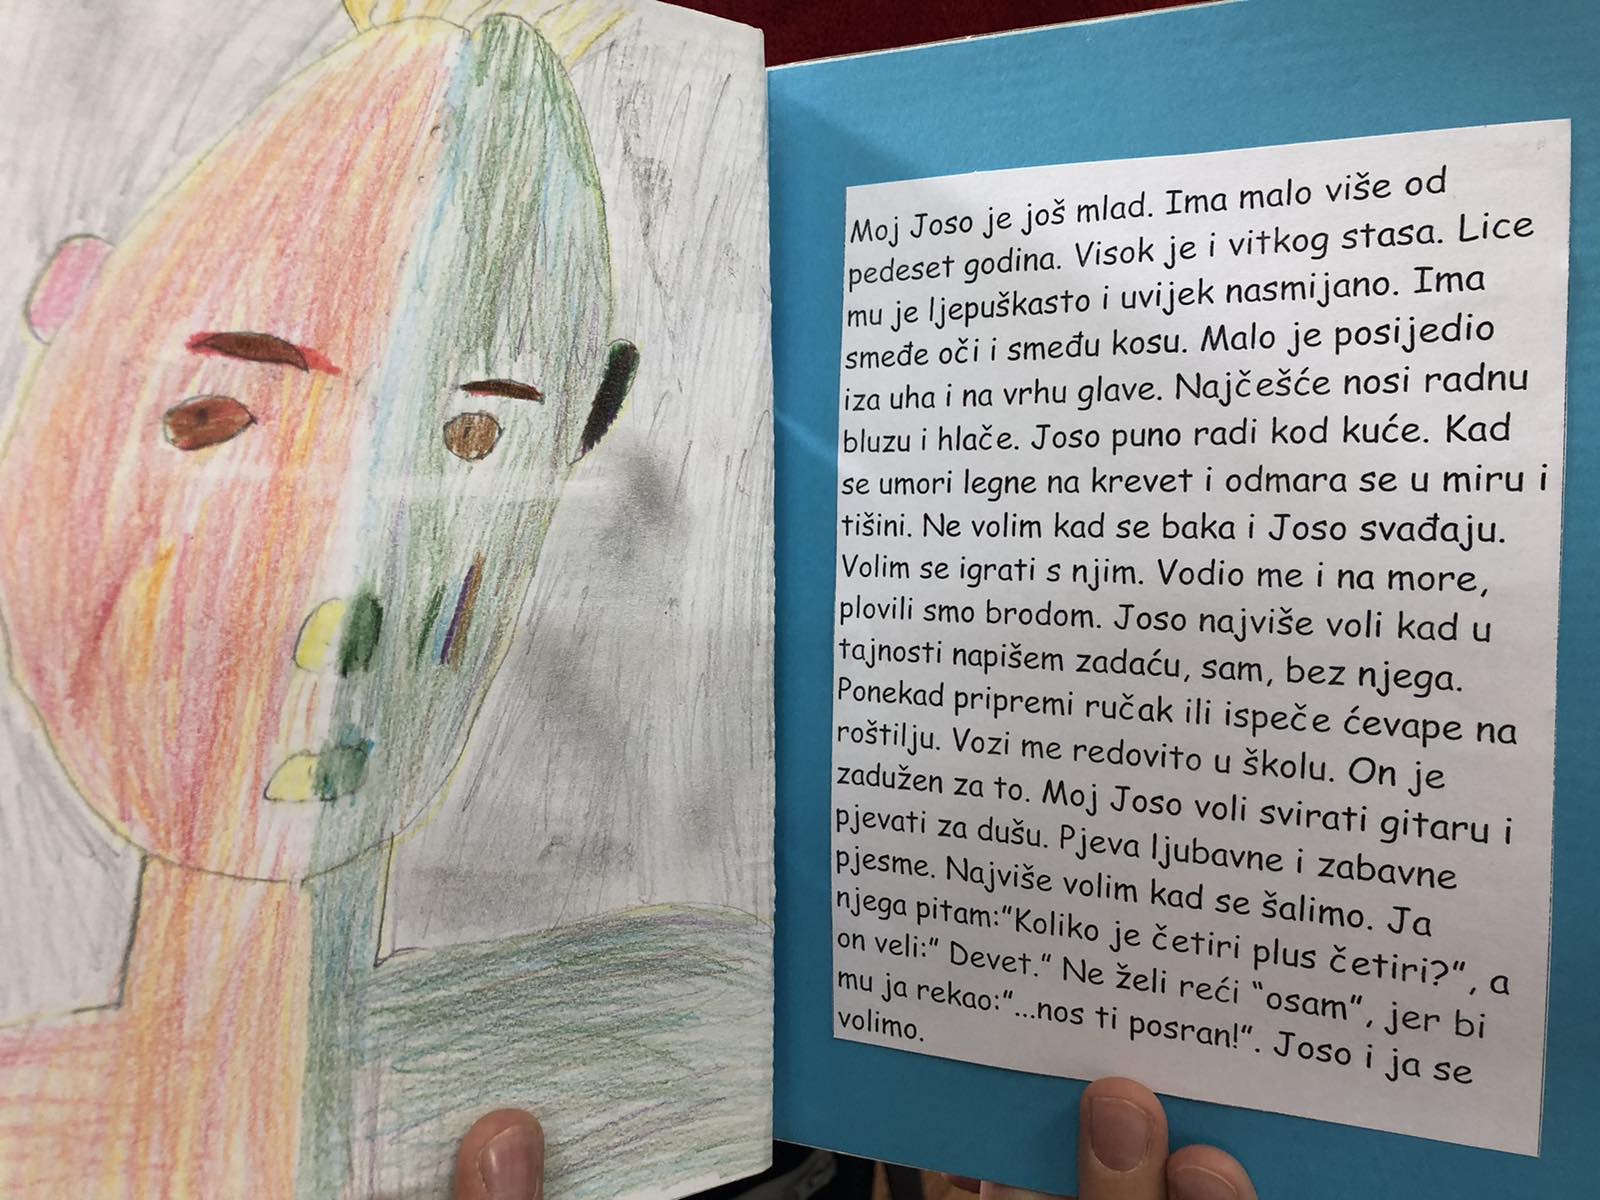 Moj Joso je još mlad. Ima malo više od
pedeset godina. Visok je i vitkog stasa. Lice
mu je ljepuškasto i uvijek nasmijano. Ima
smeđe oči i smeđu kosu. Malo je posijedio
iza uha i na vrhu glave. Najčešće nosi radnu
bluzu i hlače. Joso puno radi kod kuće. Kad
se umori legne na krevet i odmara se u miru i
tišini. Ne volim kad se baka i Joso svađaju.
Volim se igrati s njim. Vodio me i na more,
plovili smo brodom. Joso najviše voli kad u
tajnosti napišem zadaću, sam, bez njega.
Ponekad pripremi ručak ili ispeče ćevape na
roštilju. Vozi me redovito u školu. On je
zadužen za to. Moj Joso voli svirati gitaru i
pjevati za dušu. Pjeva ljubavne i zabavne
pjesme. Najviše volim kad se šalimo. Ja
njega pitam:"Koliko je četiri plus četiri?", a
on veli:" Devet." Ne želi reći "osam", jer bi
mu ja rekao:"...nos ti posran!". Joso i ja se
volimo.